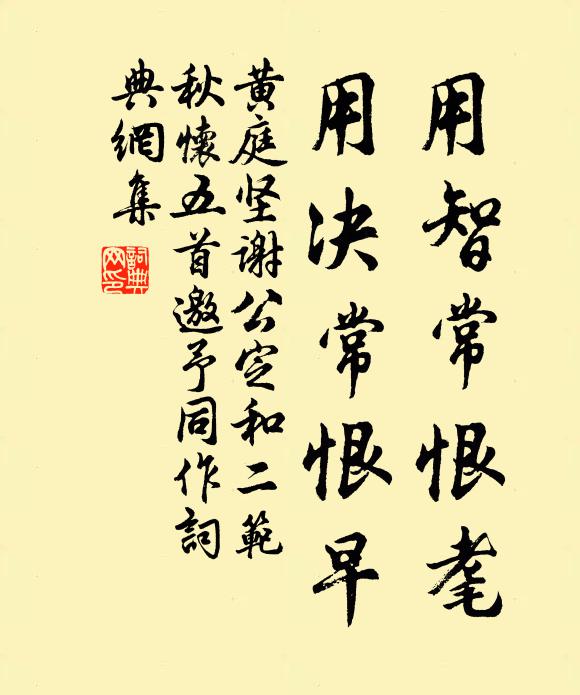 用智常恨耄
用决常恨早
黄庭坚謝公定和二範
秋懷五首邀予同作詞
典網集
詞典網印